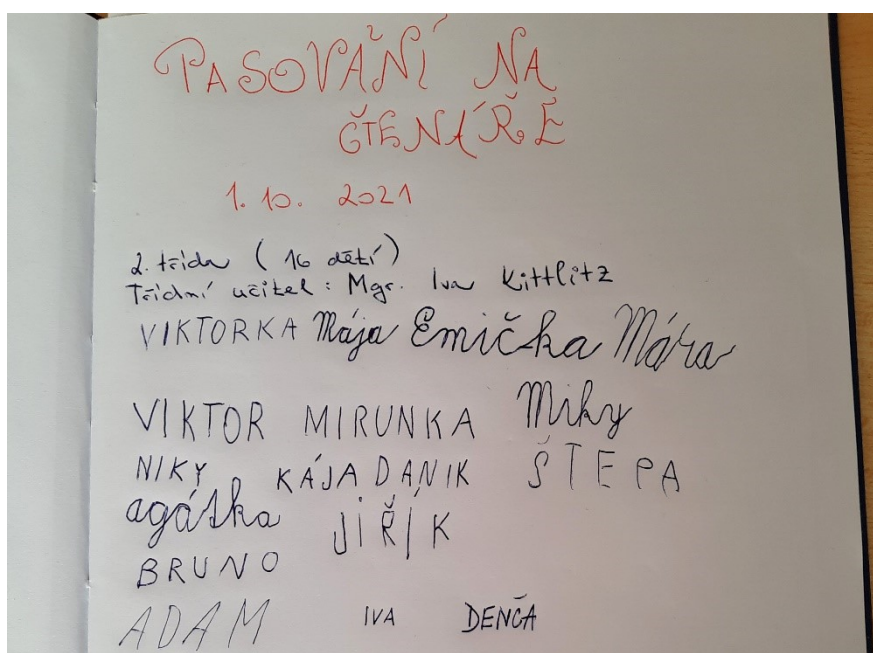 PASOVÁNÍ NA
ČTENÁŘE
1. 10. 2021
2. třída ( 16 dětí )
Třídní učitel : Mgr. Iva Kittlitz
VIKTORKA Mája Emička Mára
VIKTOR MIRUNKA Miky
NIKY KÁJA DANIK ŠTEPA
agátka JIŘÍK
BRUNO
ADAM IVA DENČA